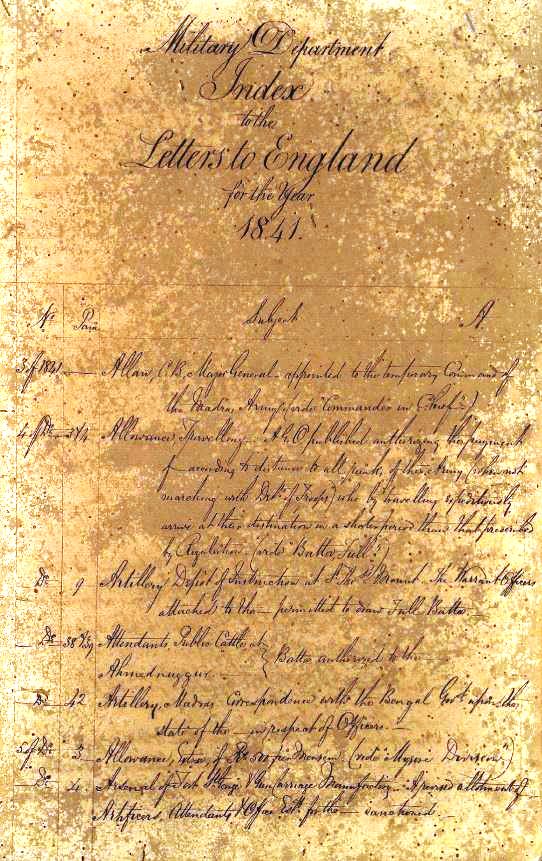 Military Department
Index
to the
Letters to England
for the Year
1841.
No. Para Subject A
3 of 1841 — Allan, C.B. Major General — appointed to the temporary Command of
the Madras Army (vide "Commander in Chief")
4 of Do — 3 & 4 Allowance, Travelling — A G.O published authorizing the payment
of — according to distance to all ranks of this Army (when not
marching with of Troops) who by travelling expeditiously
arrive at their destination in a shorter period than that prescribed
by Regulation — (vide "Batta Full")
Do 9 Artillery Depôt of Instruction at St. Thos. Mount. The Warrant Officers
attached to the — permitted to draw Full Batta —
Do 38 & 39 Attendants Public Cattle at } Batta authorized to the —
Ahmednuggur. —
Do 42 Artillery, Madras. Correspondence with the Bengal Govt. upon the
state of the — in respect of Officers. —
5 of Do 3 Allowance, Extra, of Rs 500 per Mensem. (vide "Mysore Division")
Do 4 Arsenal of Fort St. George & Gun Carriage Manufactory — A revised allotment of
Artificers, Attendants & Office Estt. for the — sanctioned —